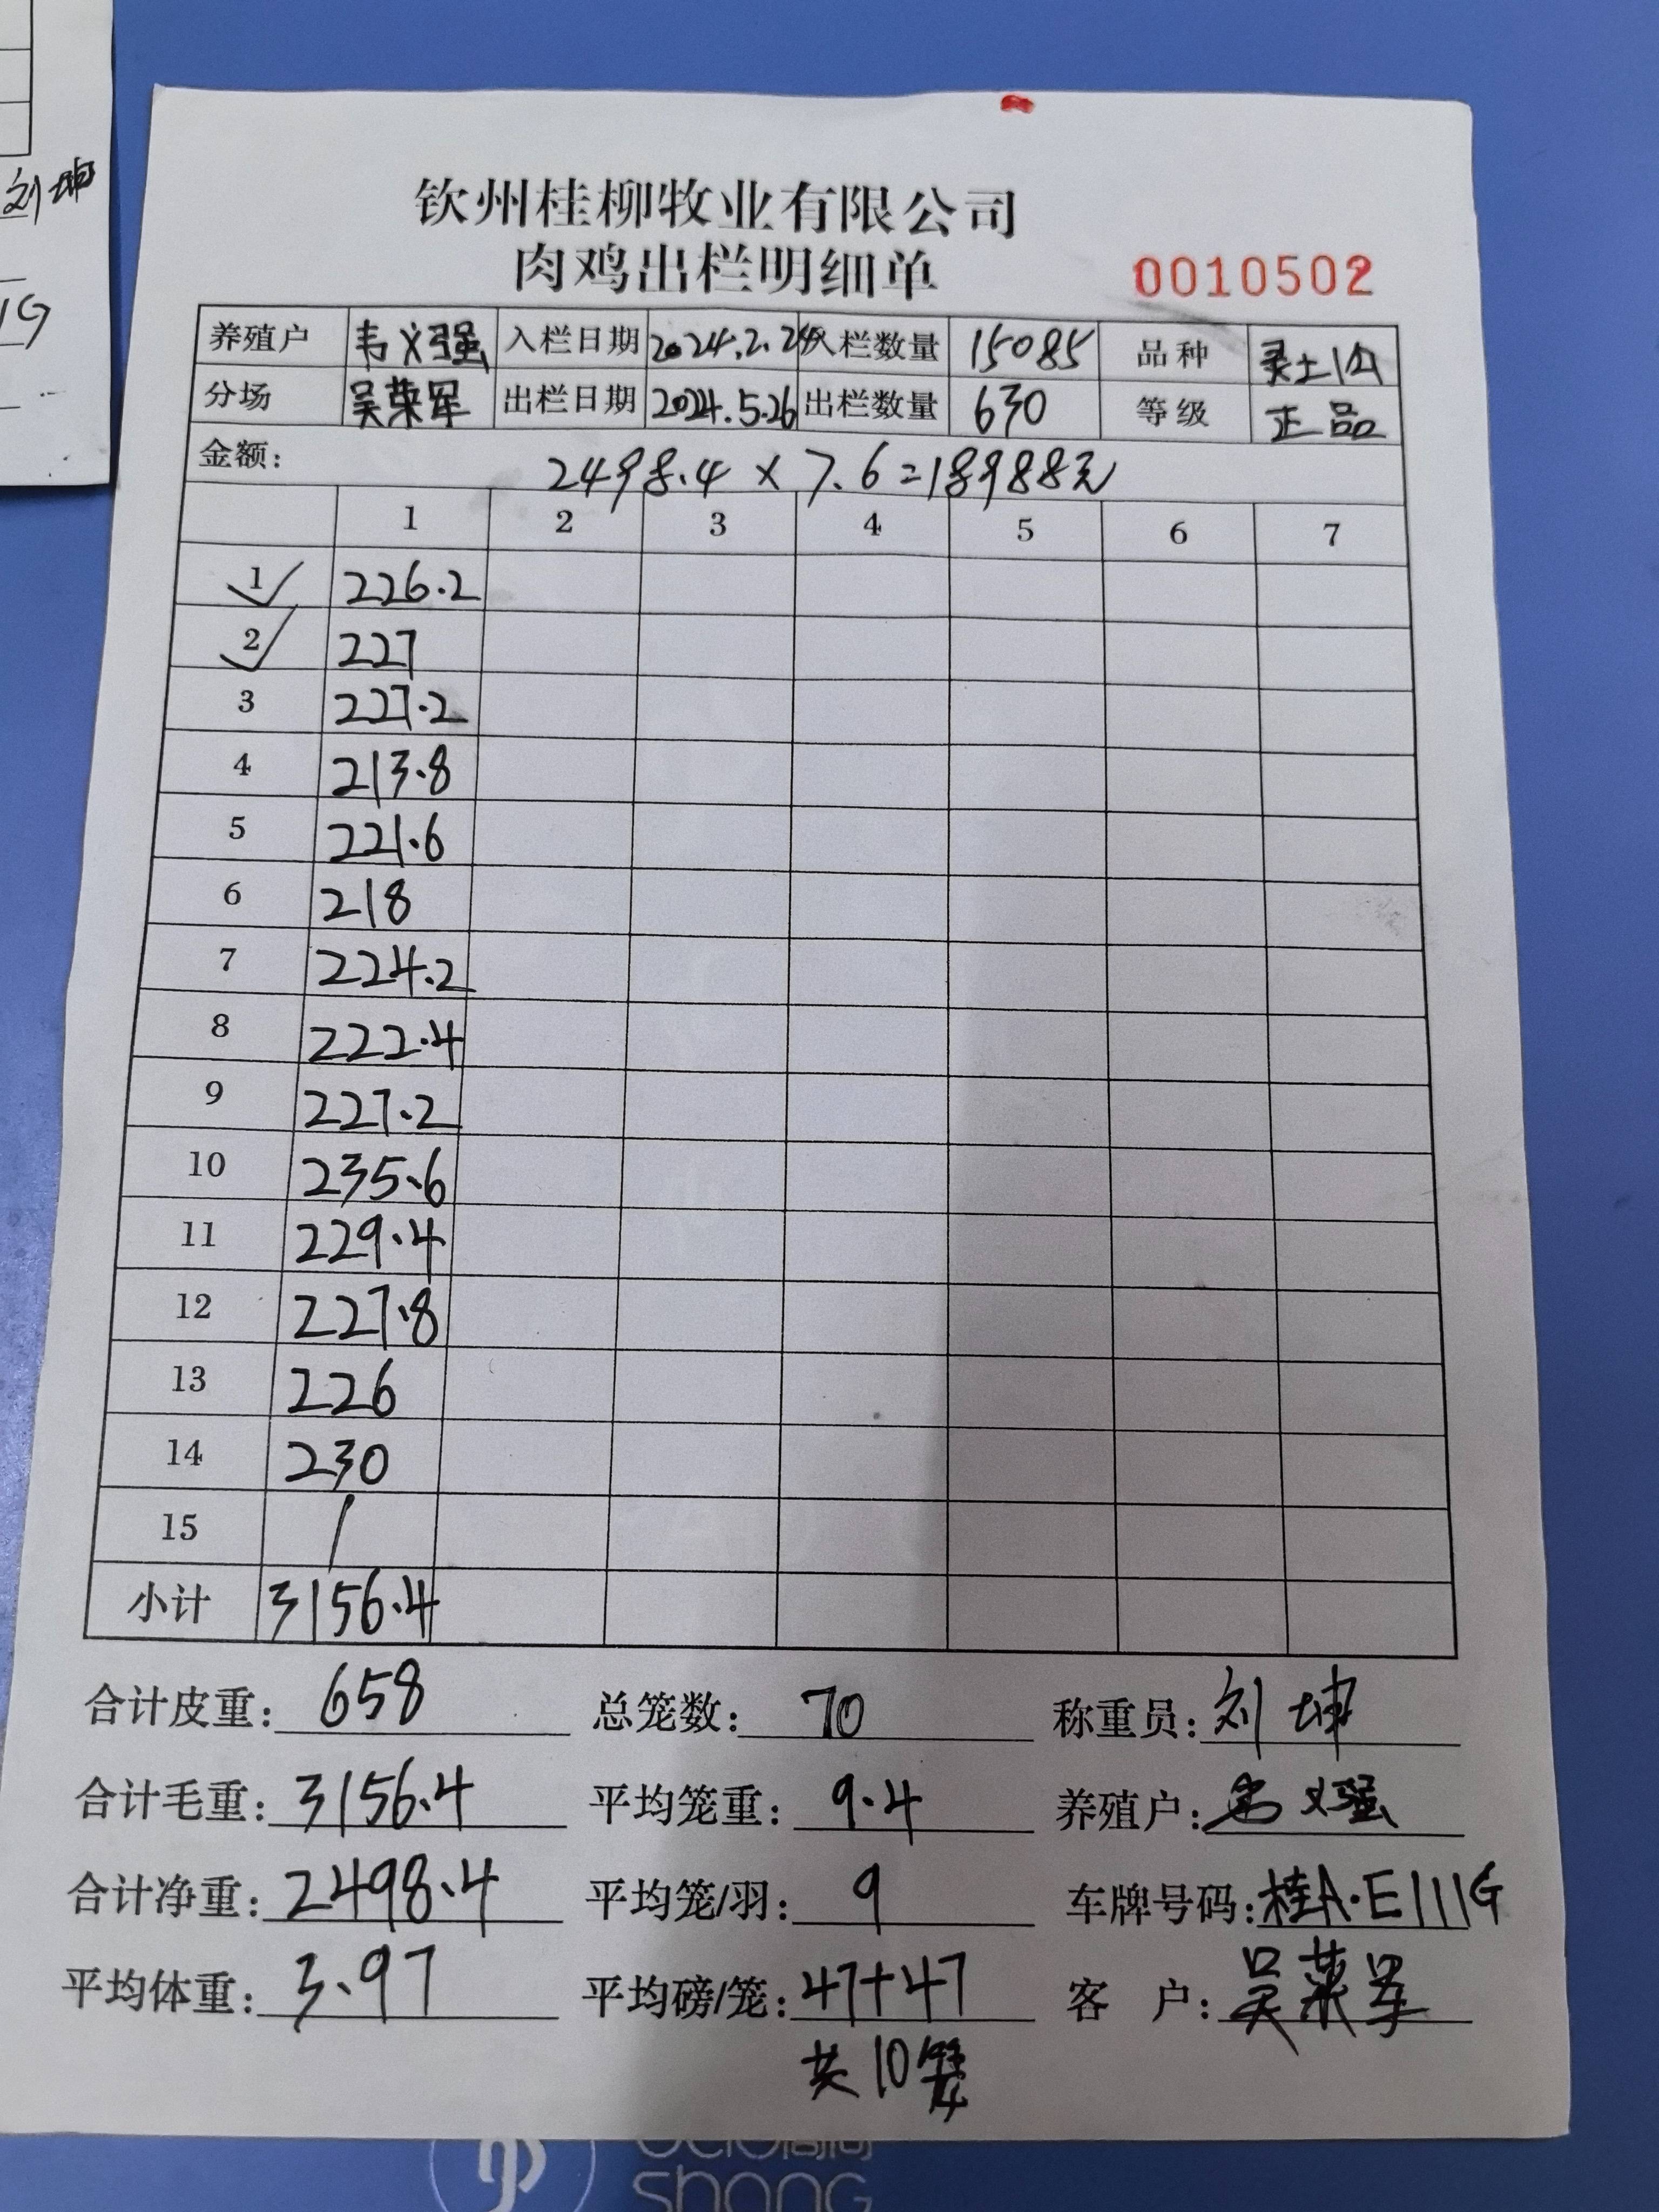 刘坤
钦州桂柳牧业有限公司
肉鸡出栏明细单 0010502
养殖户 韦义强 入栏日期 2024.2.24 入栏数量 15085 品种 灵土1公
分场 吴荣军 出栏日期 2024.5.26 出栏数量 630 等级 正品
金额: 2498.4 × 7.6=18988元
1 2 3 4 5 6 7
1 226.2
2 227
3 227.2
4 213.8
5 221.6
6 218
7 224.2
8 222.4
9 227.2
10 235.6
11 229.4
12 227.8
13 226
14 230
15 /
小计 3156.4
合计皮重: 658 总笼数: 70 称重员: 刘坤
合计毛重: 3156.4 平均笼重: 9.4 养殖户: 韦义强
合计净重: 2498.4 平均笼/羽: 9 车牌号码: 桂A·E111G
平均体重: 3.97 平均磅/笼: 47+47 客户: 吴荣军
共10笼
shang